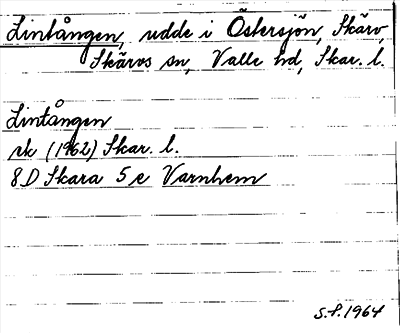 Lintången, udde i Östersjön, Skärv,
Skärvs sn, Valle hd, Skar. l.
Lintången
rk (1962) Skar. l.
8D Skara 5e Varnhem
S.F. 1964